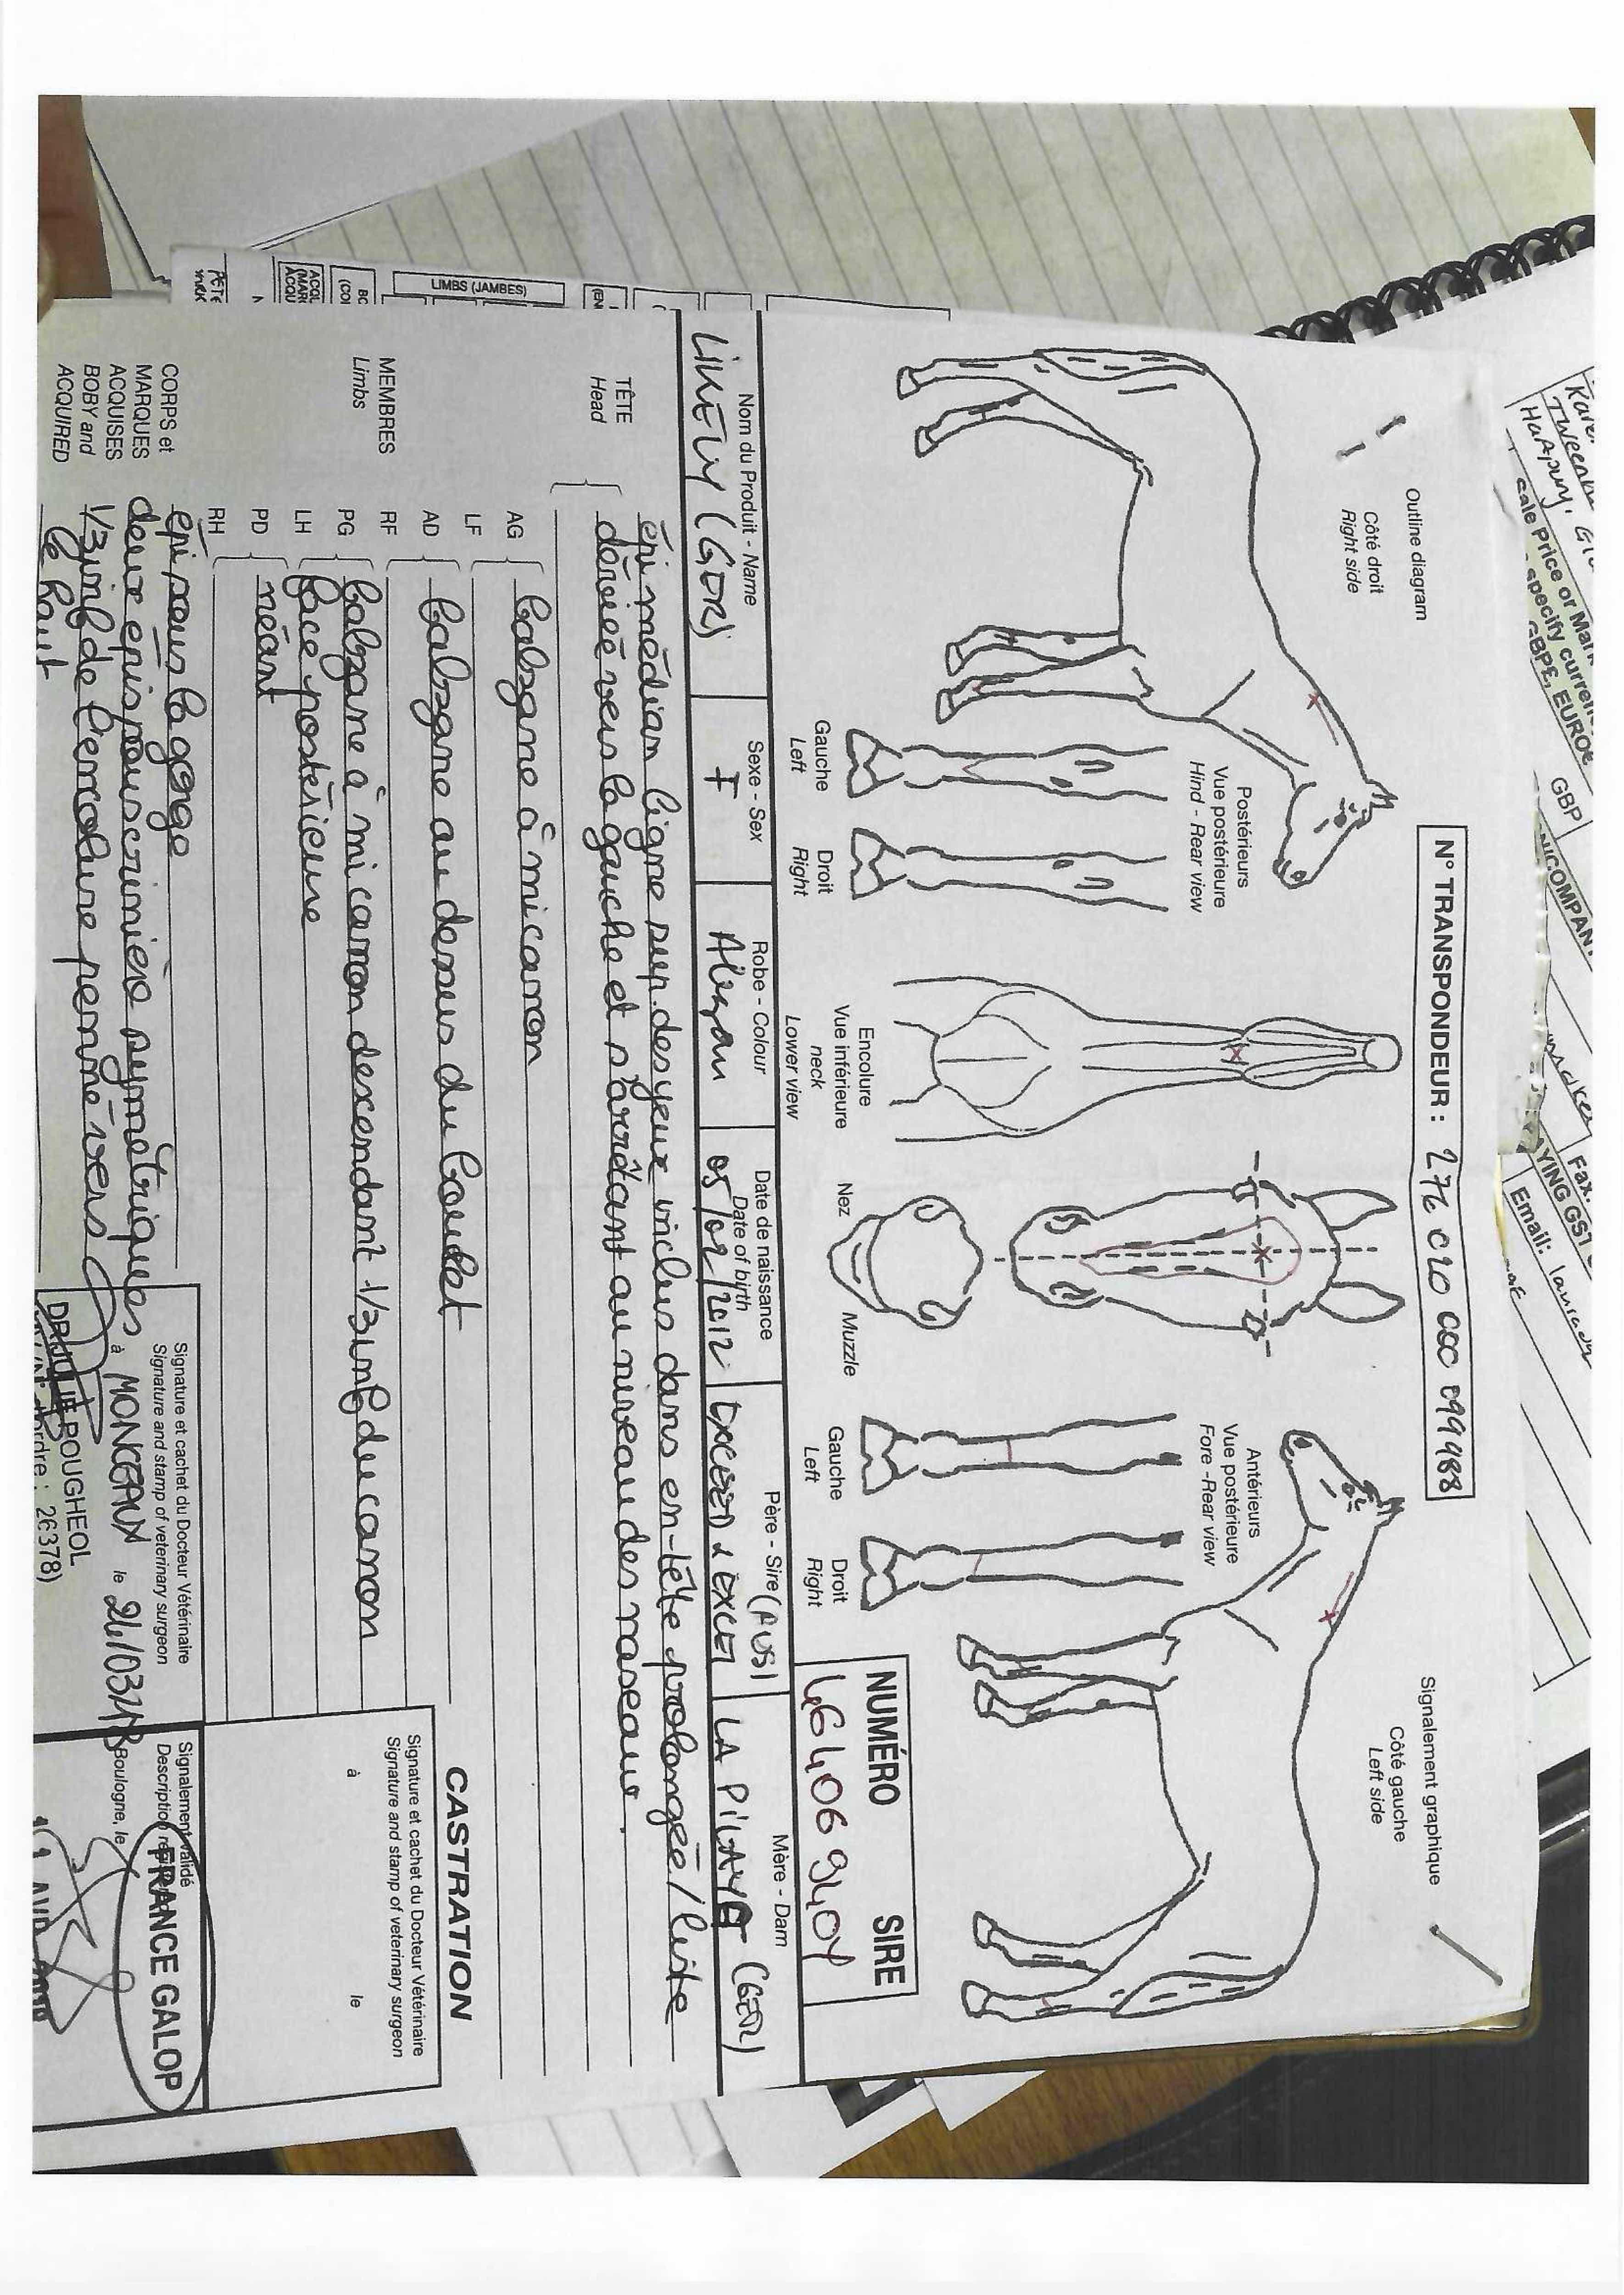 Outline diagram
Côté droit
Right side
N° TRANSPONDEUR : 276 020 000 099488
Signalement graphique
Côté gauche
Left side
Postérieurs
Vue postérieure
Hind - Rear view
Gauche
Left
Droit
Right
Encolure
Vue inférieure
neck
Lower view
Nez
Muzzle
Antérieurs
Vue postérieure
Fore -Rear view
Gauche
Left
Droit
Right
NUMÉRO SIRE
Nom du Produit - Name
LIKELY (GER)
Sexe - Sex
F
Robe - Colour
Alezan
Date de naissance
Date of birth
05/02/2012
Père - Sire (AUS)
EXCEED & EXCEL
Mère - Dam
(GER)
TÊTE
Head
épi médian ligne sup. des yeux inclus dans en-tête prolongée / liste
déviée vers la gauche et s'arrêtant au niveau des naseaux.
MEMBRES
Limbs
AG
LF
balzane à mi canon
AD
RF
balzane au dessus du boulet
PG
LH
balzane à mi canon descendant 1/3 inf du canon
face postérieure
PD
RH
néant
CORPS et
MARQUES
ACQUISES
BOBY and
ACQUIRED
épi sous la gorge
deux épis sous crinière symétriques
1/3 inf de l'encolure penné vers
le haut
CASTRATION
Signature et cachet du Docteur Vétérinaire
Signature and stamp of veterinary surgeon
à
le
Signature et cachet du Docteur Vétérinaire
Signature and stamp of veterinary surgeon
à MONCEAUX le
DR JULIE POUGHEOL
26378)
Signalement validé
Description
Boulogne, le
FRANCE GALOP
LIMBS (JAMBES)
Sale Price or
specify
GBP£, EURO€
GBP
Fax:
Email: